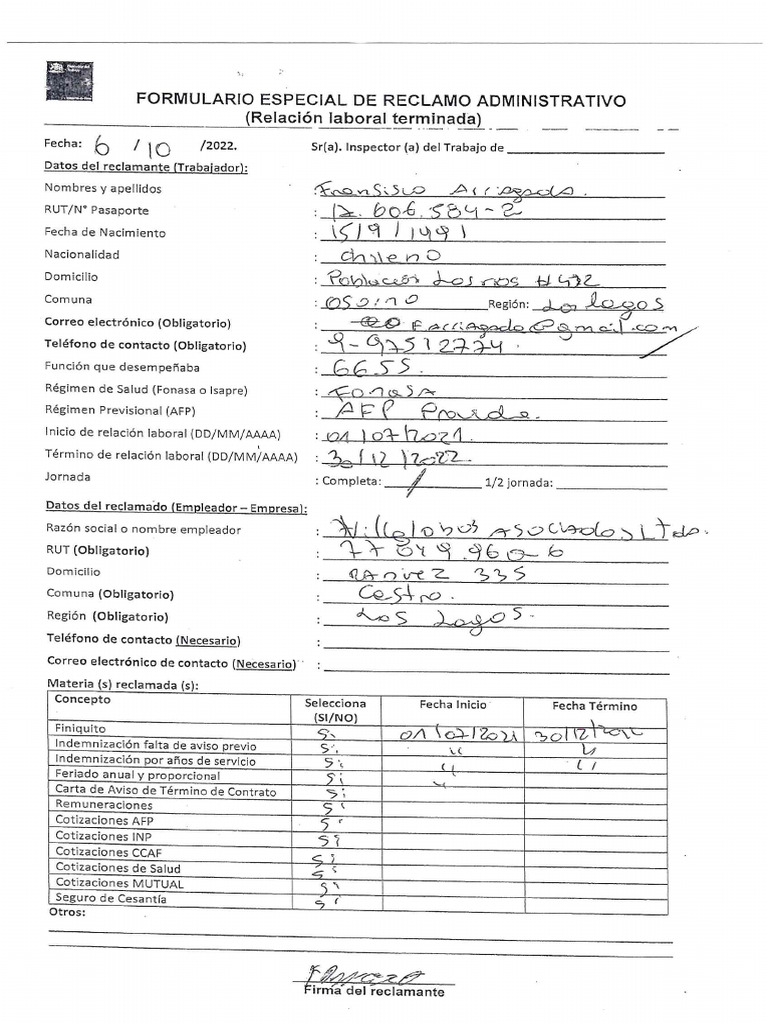 Dirección del Trabajo
FORMULARIO ESPECIAL DE RECLAMO ADMINISTRATIVO
(Relación laboral terminada)
Fecha: 6 / 10 /2022. Sr(a). Inspector (a) del Trabajo de
Datos del reclamante (Trabajador):
Nombres y apellidos : Fransisco Arriagada.
RUT/N° Pasaporte : 12.606.584-2
Fecha de Nacimiento : 15/9/1991
Nacionalidad : chileno
Domicilio : Poblacion Los #472
Comuna : Osorno Región: Los lagos
Correo electrónico (Obligatorio) : Farriagada@gmail.com
Teléfono de contacto (Obligatorio) : 9-97512774.
Función que desempeñaba : GGSS.
Régimen de Salud (Fonasa o Isapre) : Fonasa
Régimen Previsional (AFP) : AFP Provida.
Inicio de relación laboral (DD/MM/AAAA) : 01/07/2021.
Término de relación laboral (DD/MM/AAAA) : 30/12/2022.
Jornada : Completa: / 1/2 jornada:
Datos del reclamado (Empleador – Empresa):
Razón social o nombre empleador : Villalobos Asociados Ltda.
RUT (Obligatorio) : 77 049.960-6
Domicilio : Ramirez 335
Comuna (Obligatorio) : Castro.
Región (Obligatorio) : Los Lagos.
Teléfono de contacto (Necesario) :
Correo electrónico de contacto (Necesario) :
Materia (s) reclamada (s):
Concepto Selecciona (SI/NO) Fecha Inicio Fecha Término
Finiquito Si 01/07/2021 30/12/2022
Indemnización falta de aviso previo Si " "
Indemnización por años de servicio Si " "
Feriado anual y proporcional Si "
Carta de Aviso de Término de Contrato Si
Remuneraciones Si
Cotizaciones AFP Si
Cotizaciones INP Si
Cotizaciones CCAF Si
Cotizaciones de Salud Si
Cotizaciones MUTUAL Si
Seguro de Cesantía Si
Otros:
Firma del reclamante